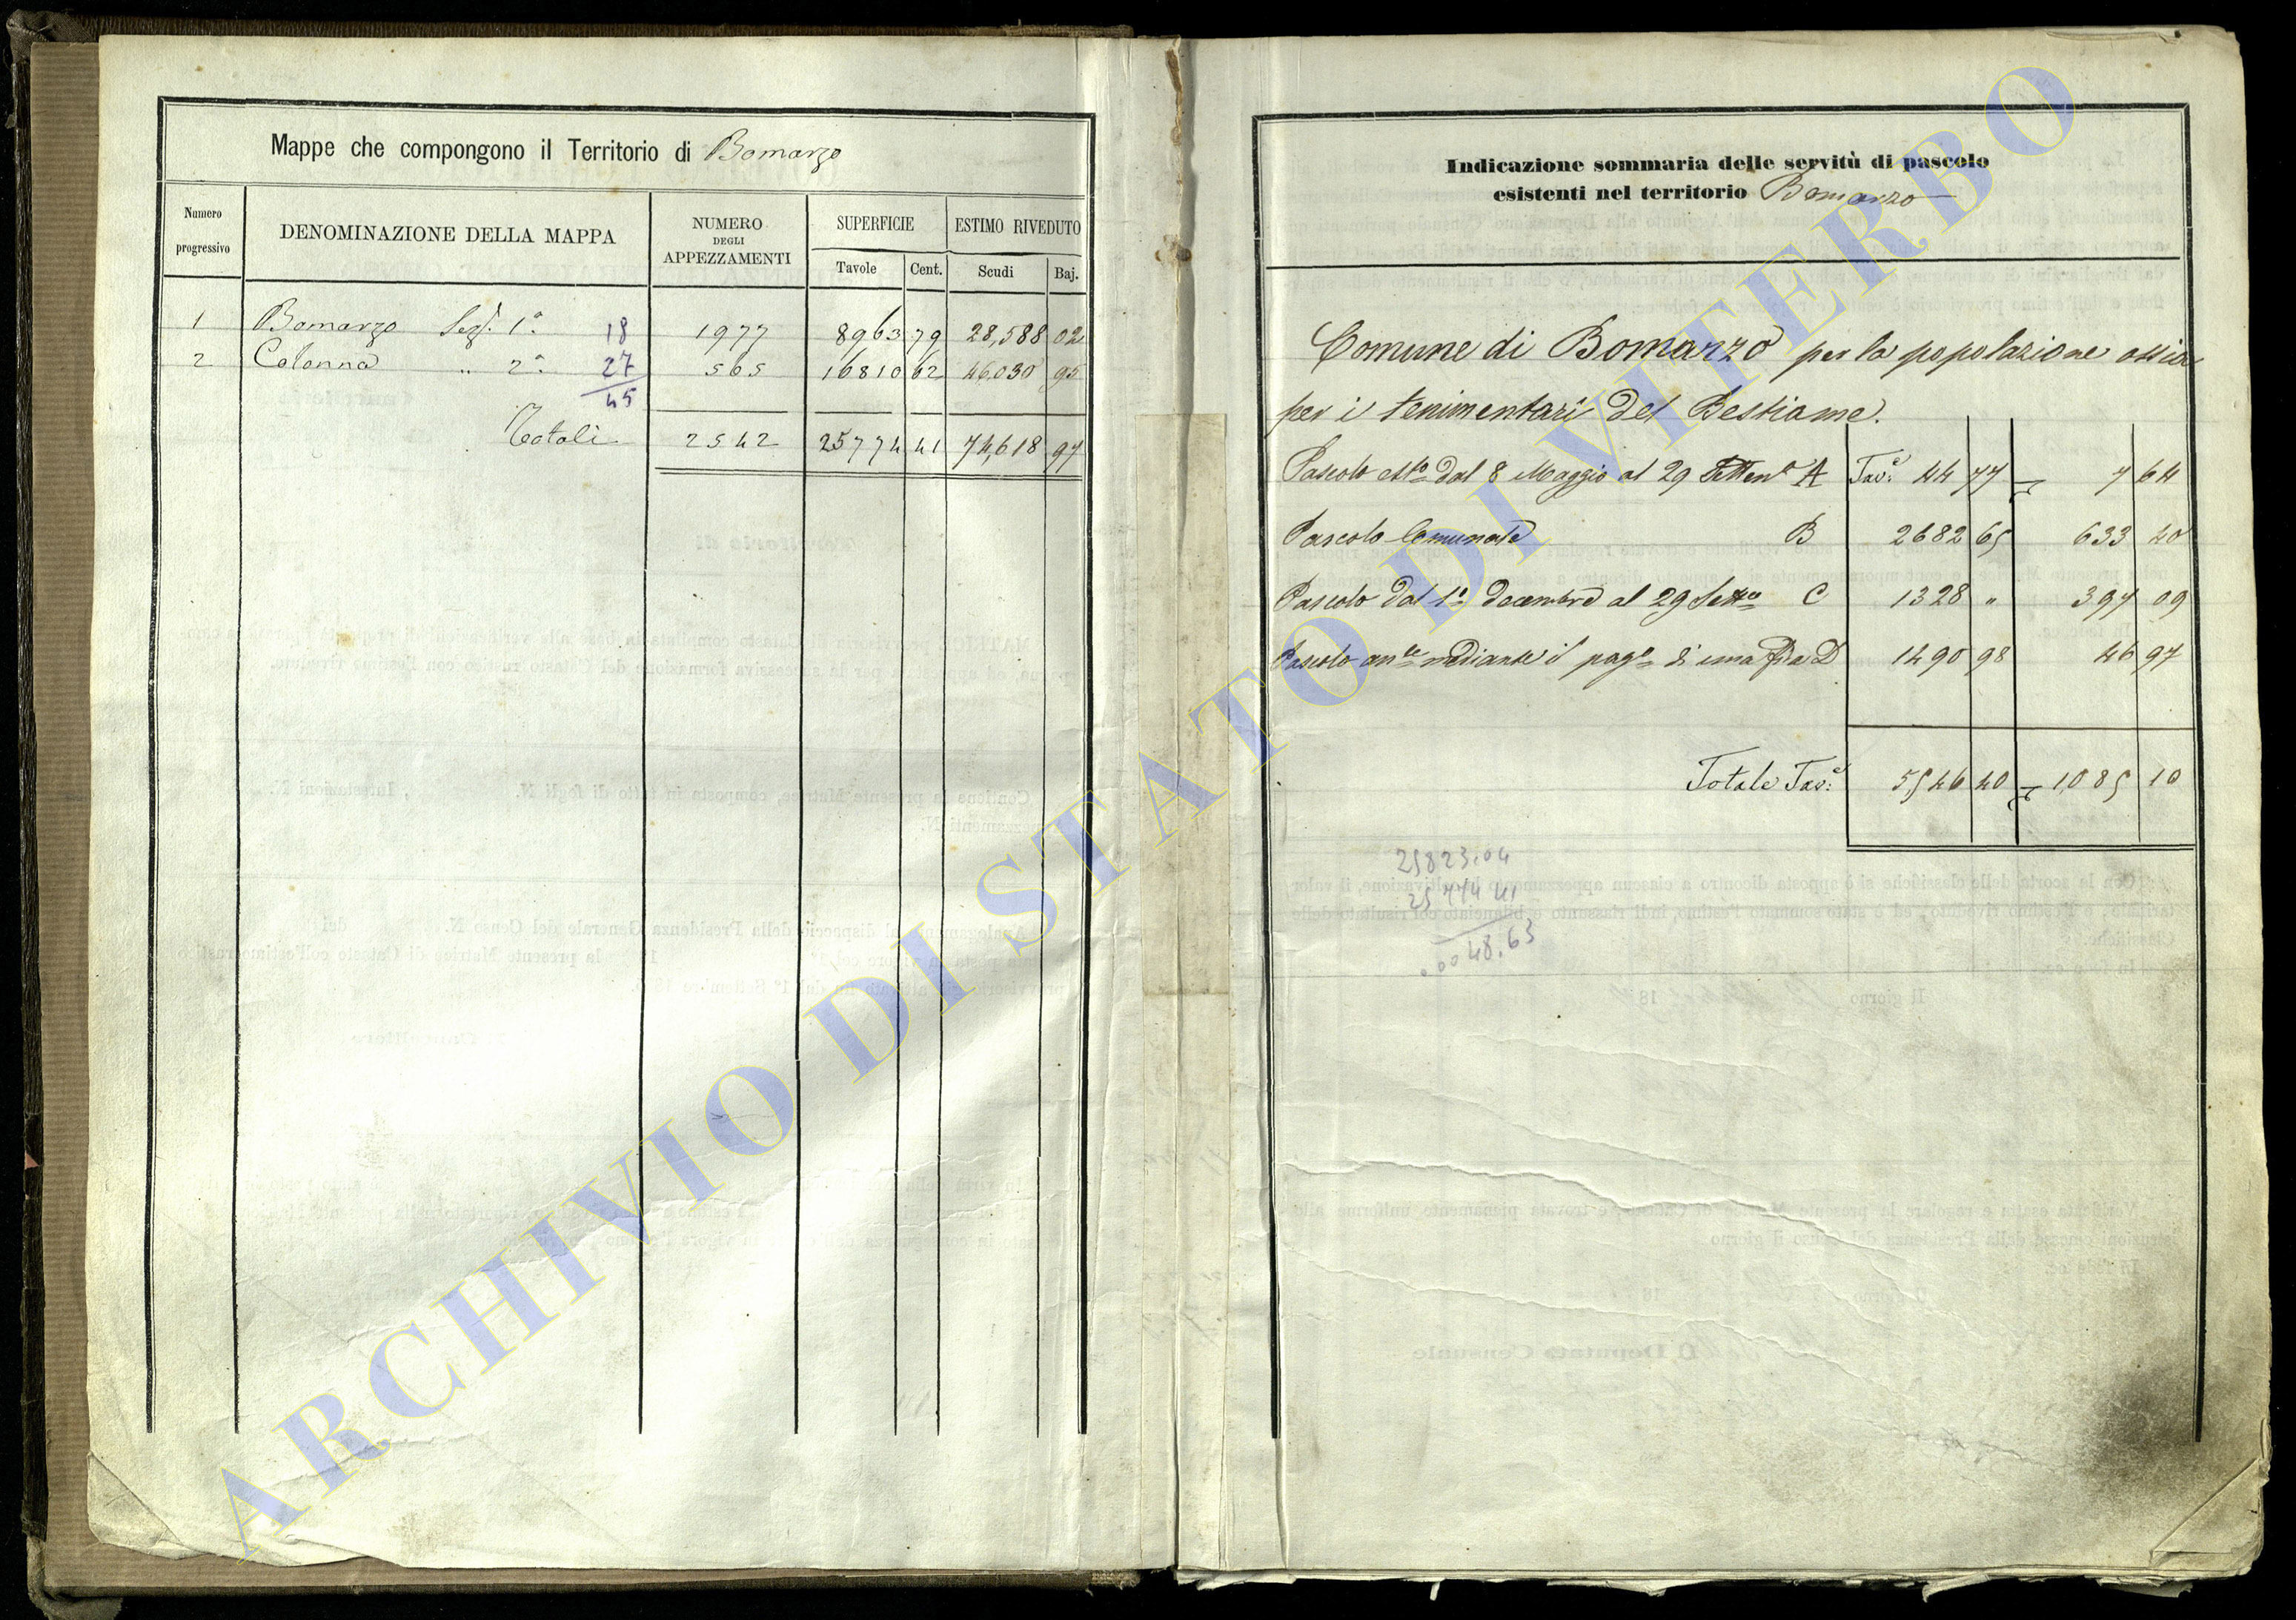 Mappe che compongono il Territorio di Bomarzo
Numero progressivo
DENOMINAZIONE DELLA MAPPA
NUMERO DEGLI APPEZZAMENTI
SUPERFICIE
ESTIMO RIVEDUTO
Tavole Cent. Scudi Baj.
1 Bomarzo Sez. 1ª 18 1977 8963 79 28,588 02
2 Colonna " 2ª 27 565 16810 62 46,030 95
45
Totali 2542 25774 41 74,618 97
Indicazione sommaria delle servitù di pascolo
esistenti nel territorio Bomarzo
Comune di Bomarzo per la popolazione ossia
per i tenimentari del Bestiame.
Pascolo est.o dal 8 Maggio al 29 Settem.e A Tav.e 44 77 7 64
Pascolo Comunale B 2682 65 633 40
Pascolo dal 1º Decembre al 29 Sett.e C 1328 " 397 09
Pascolo an.le mediante il pag.o di una fida D 1490 98 46 97
Totale Tav.e 5546 40 1,085 10
25823.04
25774 41
..0048.63
ARCHIVIO DI STATO DI VITERBO